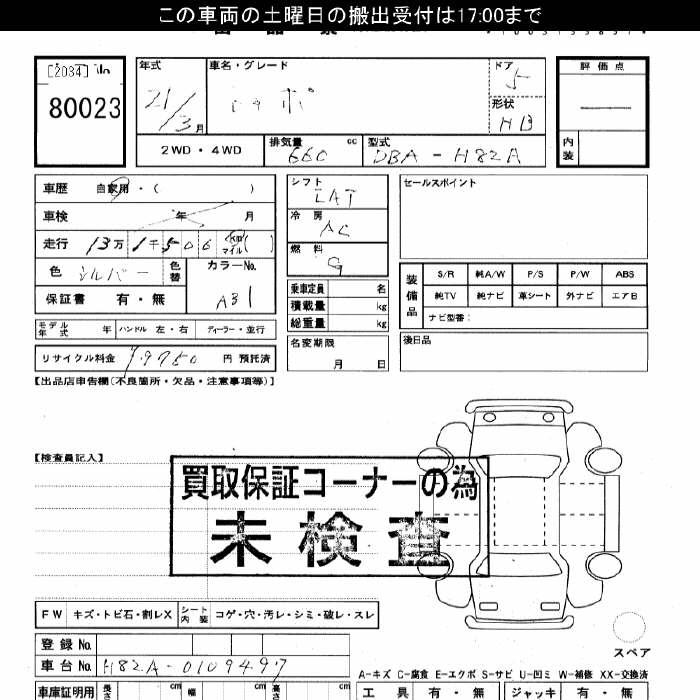 この車両の土曜日の搬出受付は17:00まで
[2034]
80023
年式
21/3月
車名・グレード
トッポ
ドア
5
形状
HB
評価点
内装
2WD・4WD
排気量
660 cc
型式
DBA-H82A
車歴 自家用・( )
車検 年 月
走行 13万 1千506 km マイル( )
色 シルバー 色替
カラーNo.
A31
保証書 有・無
シフト
LAT
冷房
AC
燃料
G
乗車定員 名
積載量 kg
総重量 kg
名変期限
月 日
セールスポイント
装備品
S/R 純A/W P/S P/W ABS
純TV 純ナビ 革シート 外ナビ エアB
ナビ型番:
後日品
モデル年式 年 ハンドル 左・右 ディーラー・並行
リサイクル料金 円 預託済
【出品店申告欄(不良箇所・欠品・注意事項等)】
【検査員記入】
買取保証コーナーの為
未検査
FW キズ・トビ石・割レX シート内装 コゲ・穴・汚レ・シミ・破レ・スレ
スペア
登録No.
車台No. H82A-0109497
A-キズ C-腐食 E-エクボ S-サビ U-凹ミ W-補修 XX-交換済
車庫証明用 長さ cm 幅 cm 高さ cm
工具 有・無 ジャッキ 有・無